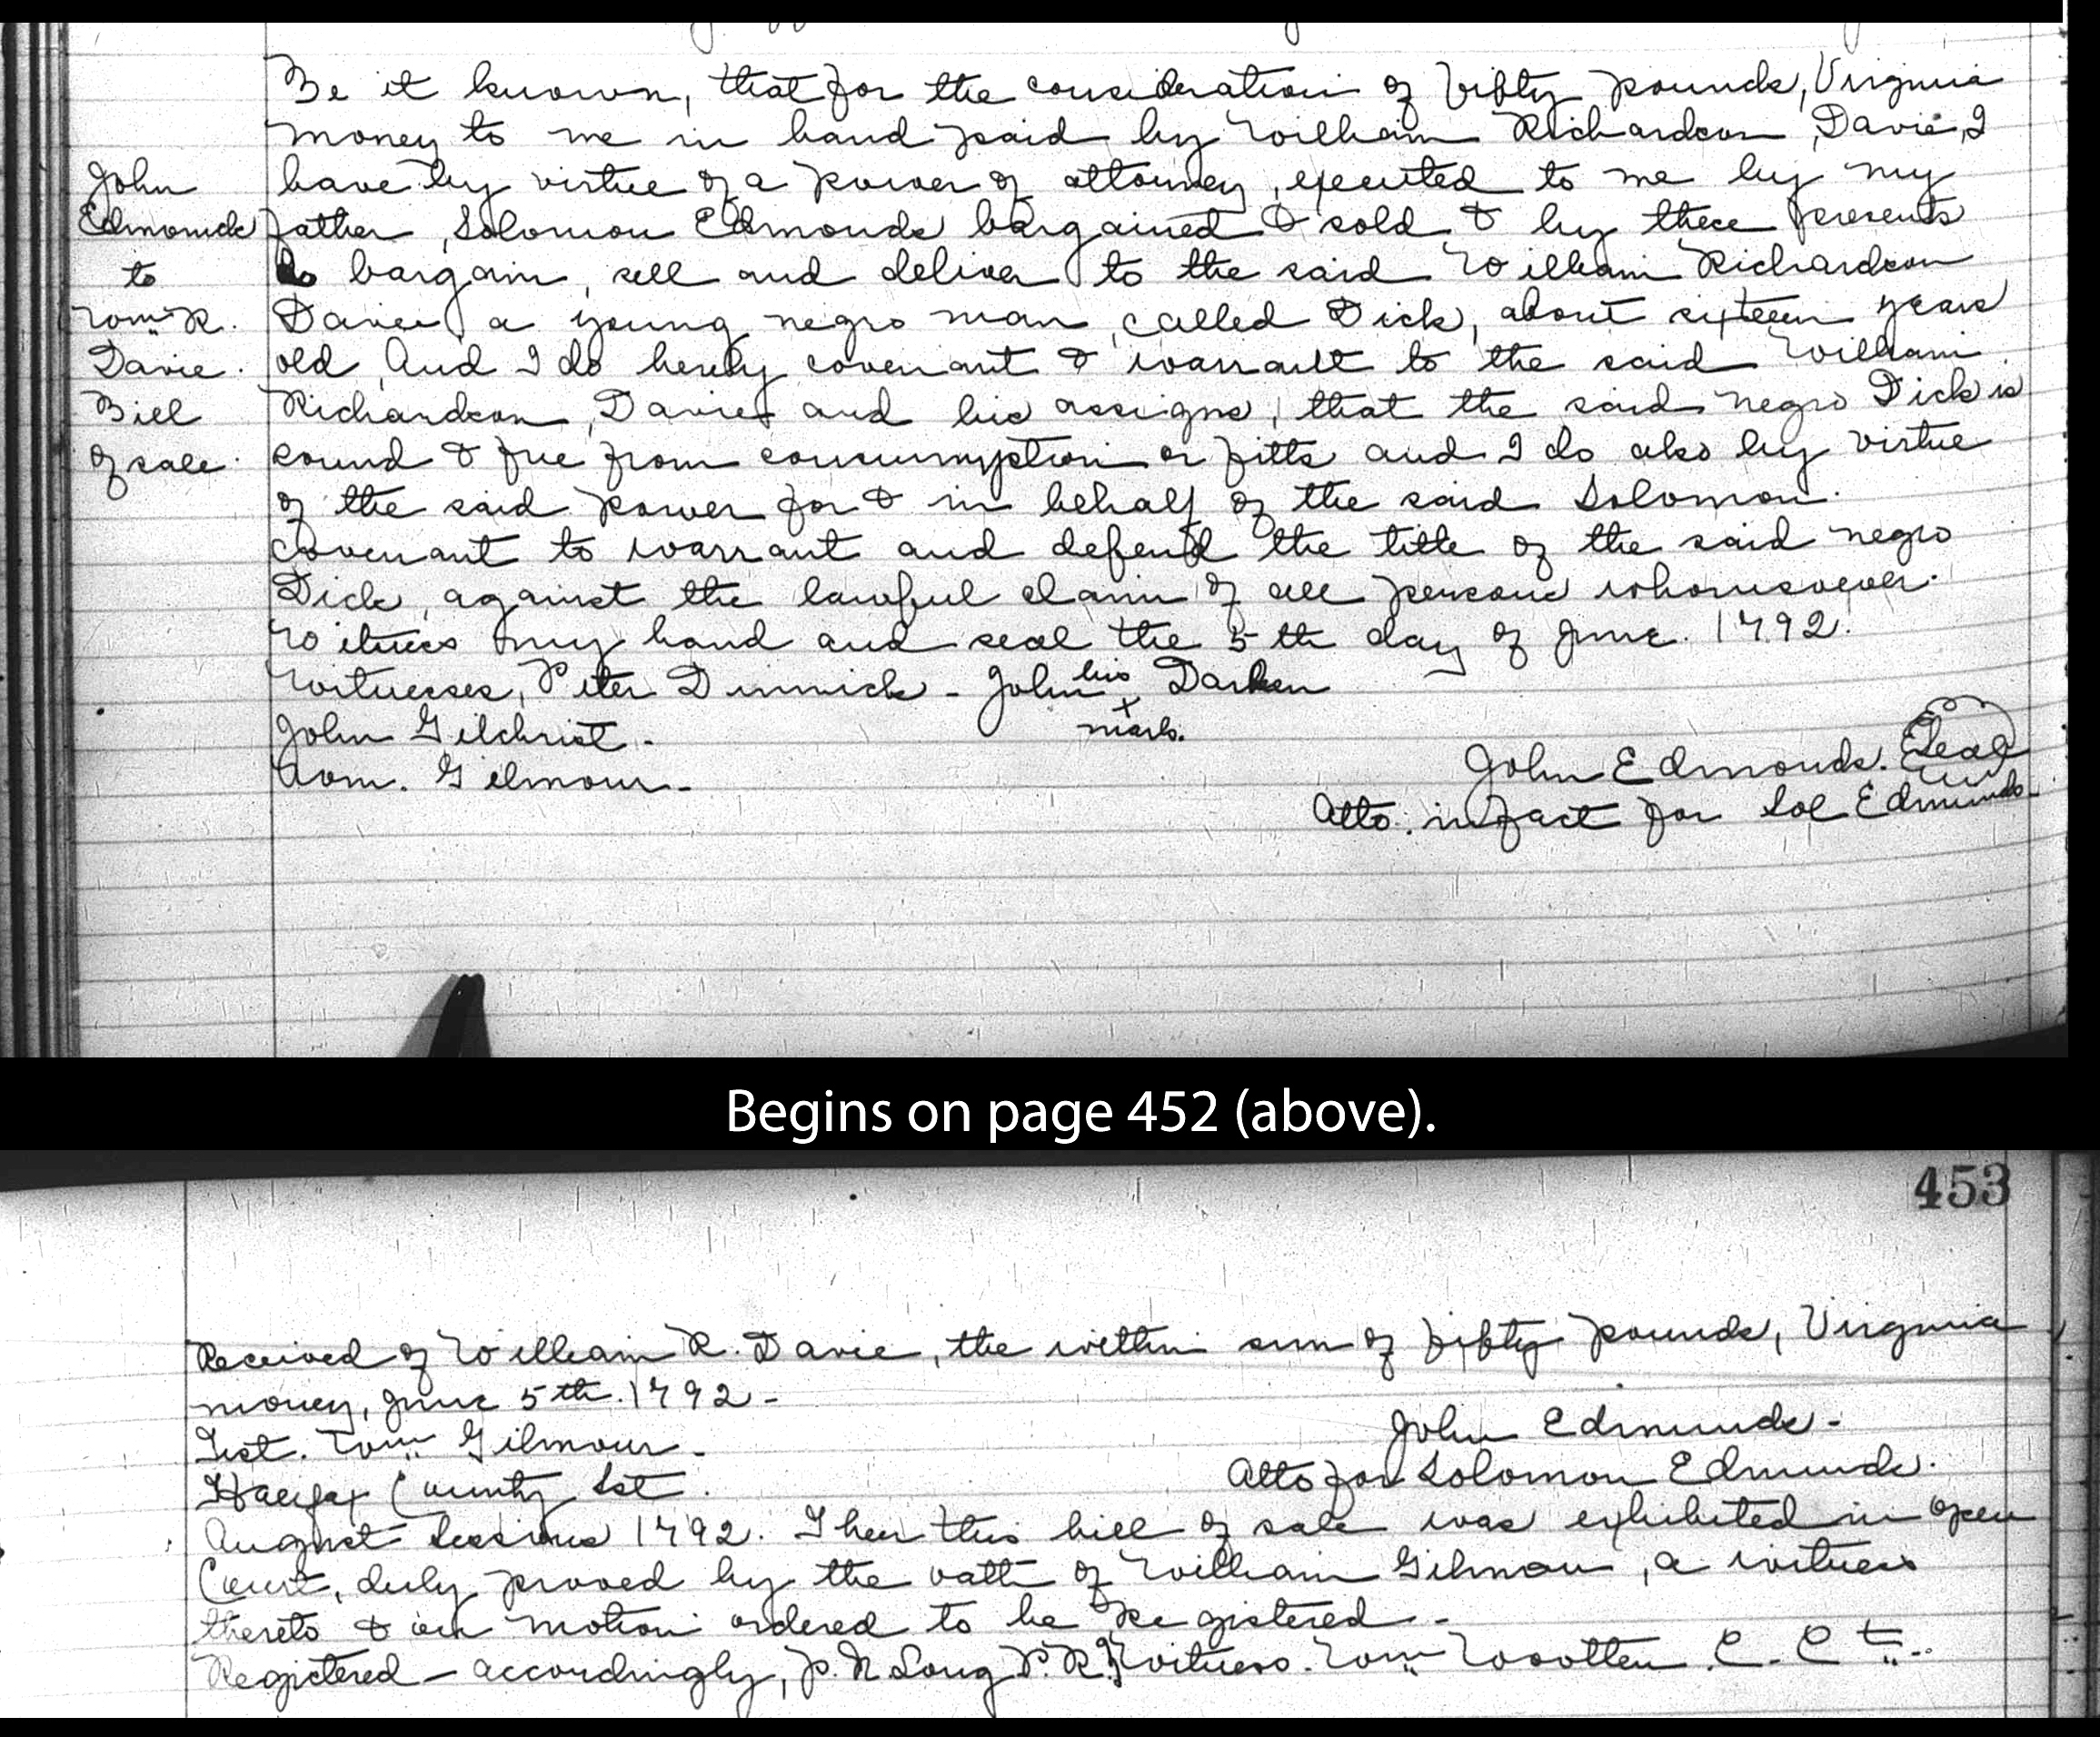 Be it known, that for the consideration of fifty pounds, Virginia
money to me in hand paid by William Richardson, Davie, I
have by virtue of a power of attorney, executed to me by my
father, Solomon Edmonds bargained & sold & by these presents
do bargain, sell and deliver to the said William Richardson
Davie, a young negro man, called Dick, about sixteen years
old, And I do hereby covenant & warrant to the said William
Richardson, Davie, and his assigns, that the said negro Dick is
sound & free from consumption or fitts and I do also by virtue
of the said power for & in behalf of the said Solomon
covenant to warrant and defend the title of the said negro
Dick, against the lawful claim of all persons whomsoever.
Witness my hand and seal the 5th day of June. 1792.
Witnesses, Peter Dinnick - John his x mark. Darken
John Gilchrist -
Wm. Gilmour -
John Edmonds. Seal
Atto. in fact for Sol Edmunds -
John
Edmonds
to
Wm. R.
Davie.
Bill
of sale.
Begins on page 452 (above).
453
Received of William R. Davie, the within sum of fifty pounds, Virginia
money, June 5th. 1792 -
Test. Wm. Gilmour -
John Edmunds -
Atto for Solomon Edmunds.
Halifax County Sct.
August Sessions 1792. Then this bill of sale was exhibited in open
Court, duly proved by the oath of William Gilmour, a witness
thereto & on motion ordered to be Registered -
Registered - accordingly, J. N Long P. R. } Witness. Wm Wootten C. C t..